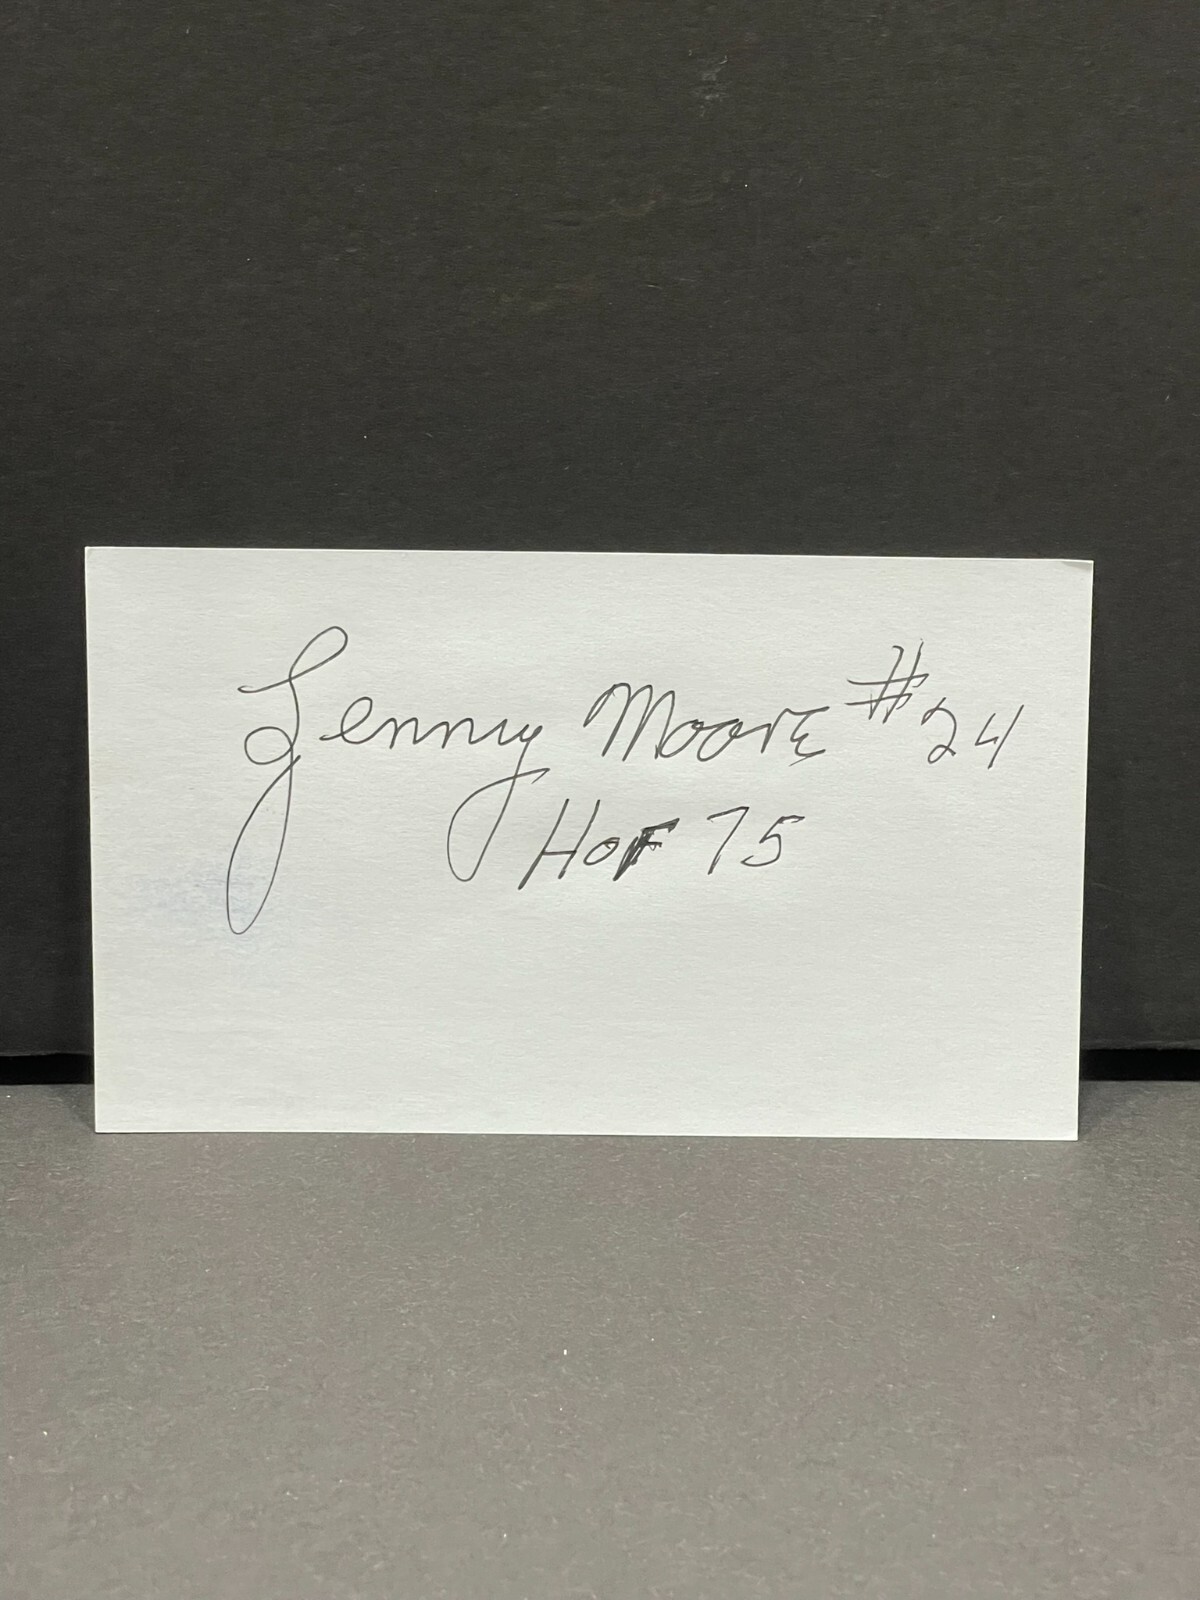 Lenny Moore #24
HOF 75